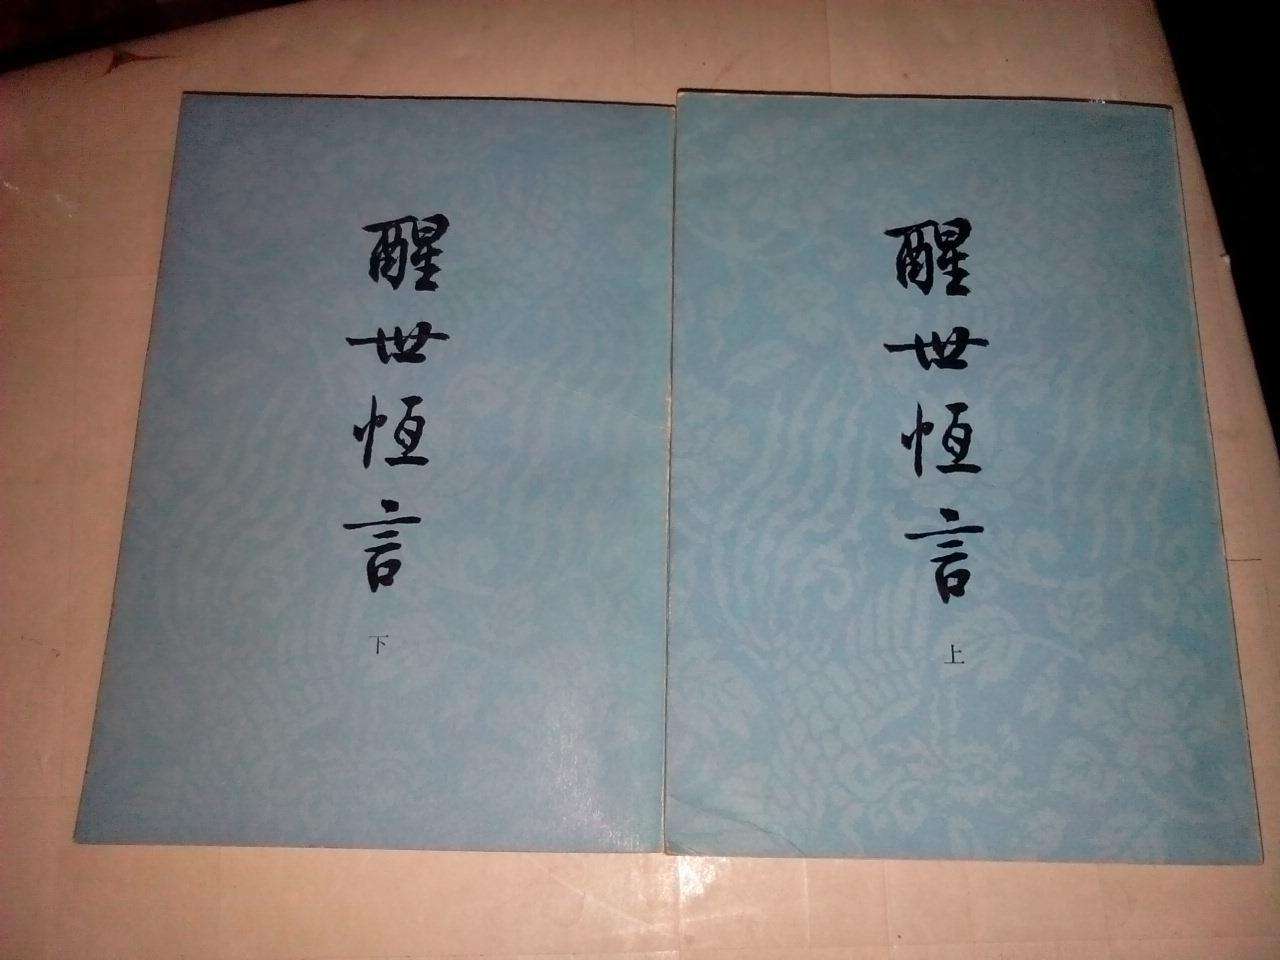 醒世恆言
下
醒世恆言
上